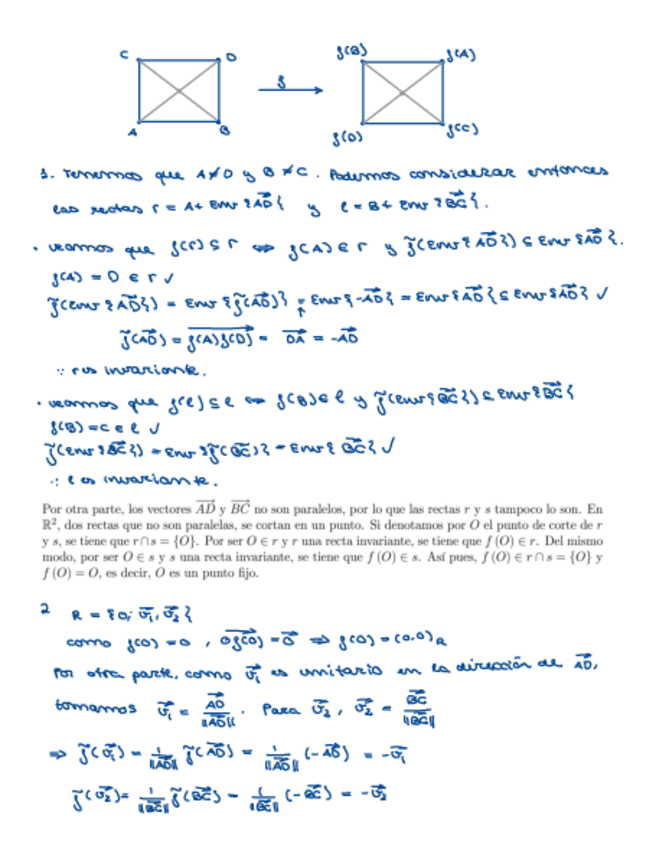 C D f(B) f(A)
f
A B f(D) f(C)
1. Tenemos que A≠D y B≠C. Podemos considerar entonces
las rectas r = A + Env {AD⃗} y l = B + Env {BC⃗}.
• veamos que f(r) ⊆ r ⇔ f(A) ∈ r y f̃(Env {AD⃗}) ⊆ Env {AD⃗}.
f(A) = D ∈ r ✓
f̃(Env {AD⃗}) = Env {f̃(AD⃗)} = Env {-AD⃗} = Env {AD⃗} ⊆ Env {AD⃗} ✓
↑
f̃(AD⃗) = f(A)f(D)⃗ = DA⃗ = -AD⃗
∴ r es invariante.
• veamos que f(l) ⊆ l ⇔ f(B) ∈ l y f̃(Env {BC⃗}) ⊆ Env {BC⃗}
f(B) = C ∈ l ✓
f̃(Env {BC⃗}) = Env {f̃(BC⃗)} = Env {BC⃗} ✓
∴ l es invariante.
Por otra parte, los vectores AD⃗ y BC⃗ no son paralelos, por lo que las rectas r y s tampoco lo son. En
ℝ², dos rectas que no son paralelas, se cortan en un punto. Si denotamos por O el punto de corte de r
y s, se tiene que r∩s = {O}. Por ser O ∈ r y r una recta invariante, se tiene que f (O) ∈ r. Del mismo
modo, por ser O ∈ s y s una recta invariante, se tiene que f (O) ∈ s. Así pues, f (O) ∈ r ∩ s = {O} y
f (O) = O, es decir, O es un punto fijo.
2 R = {O; v₁⃗, v₂⃗}
como f(O) = O , Of(O)⃗ = O⃗ ⇒ f(O) = (0,0)R
Por otra parte, como v₁⃗ es unitario en la dirección de AD⃗,
tomamos v₁⃗ = AD⃗/||AD⃗||. Para v₂⃗, v₂⃗ = BC⃗/||BC⃗||
⇒ f̃(v₁⃗) = 1/||AD⃗|| f̃(AD⃗) = 1/||AD⃗|| (-AD⃗) = -v₁⃗
f̃(v₂⃗) = 1/||BC⃗|| f̃(BC⃗) = 1/||BC⃗|| (-BC⃗) = -v₂⃗